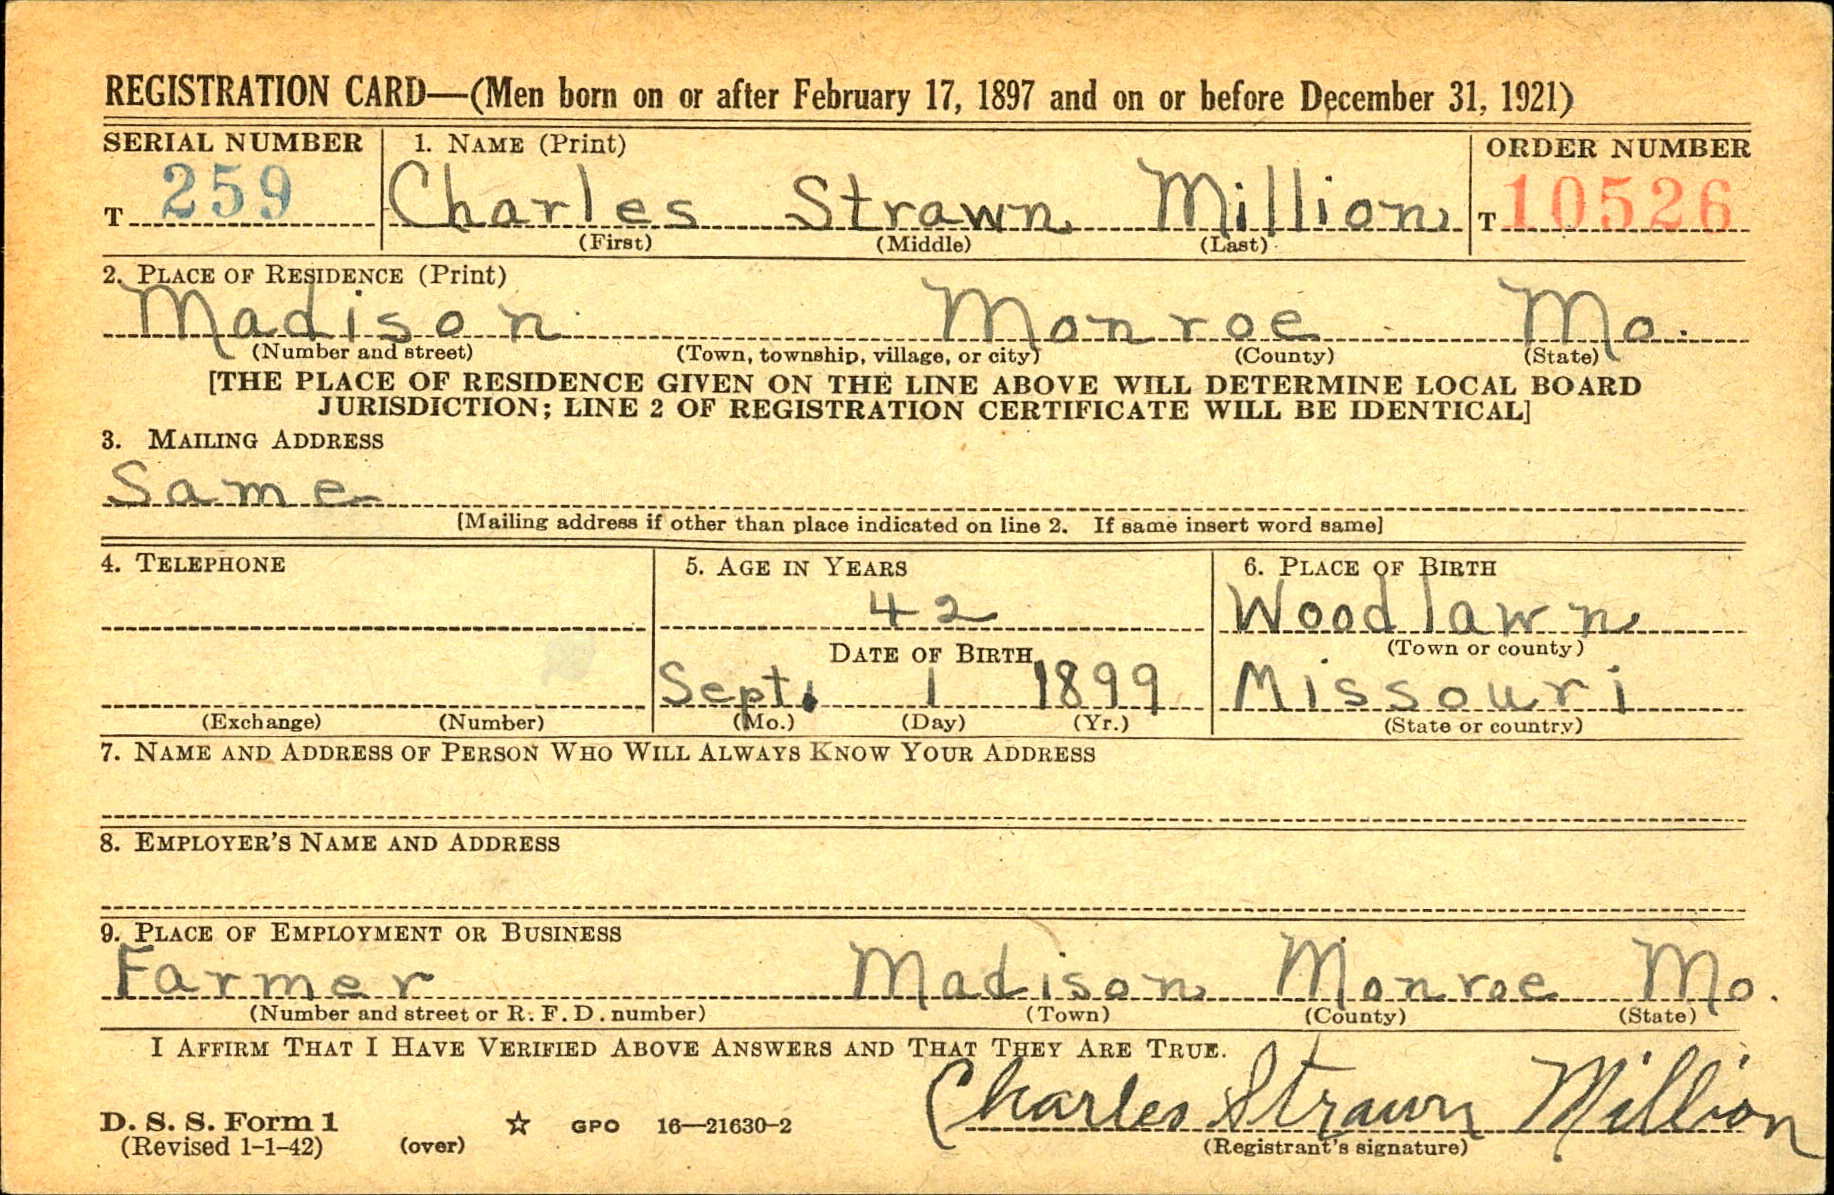 REGISTRATION CARD—(Men born on or after February 17, 1897 and on or before December 31, 1921)
SERIAL NUMBER 1. NAME (Print) ORDER NUMBER
T 259 Charles Strawn Million T 10526
(First) (Middle) (Last)
2. PLACE OF RESIDENCE (Print)
Madison Monroe Mo.
(Number and street) (Town, township, village, or city) (County) (State)
[THE PLACE OF RESIDENCE GIVEN ON THE LINE ABOVE WILL DETERMINE LOCAL BOARD
JURISDICTION; LINE 2 OF REGISTRATION CERTIFICATE WILL BE IDENTICAL]
3. MAILING ADDRESS
Same
[Mailing address if other than place indicated on line 2. If same insert word same]
4. TELEPHONE 5. AGE IN YEARS 6. PLACE OF BIRTH
42 Woodlawn
DATE OF BIRTH (Town or county)
Sept. 1 1899 Missouri
(Exchange) (Number) (Mo.) (Day) (Yr.) (State or country)
7. NAME AND ADDRESS OF PERSON WHO WILL ALWAYS KNOW YOUR ADDRESS
8. EMPLOYER'S NAME AND ADDRESS
9. PLACE OF EMPLOYMENT OR BUSINESS
Farmer Madison Monroe Mo.
(Number and street or R. F. D. number) (Town) (County) (State)
I AFFIRM THAT I HAVE VERIFIED ABOVE ANSWERS AND THAT THEY ARE TRUE.
Charles Strawn Million
D. S. S. Form 1 ☆ GPO 16—21630-2
(Revised 1-1-42) (over) (Registrant's signature)